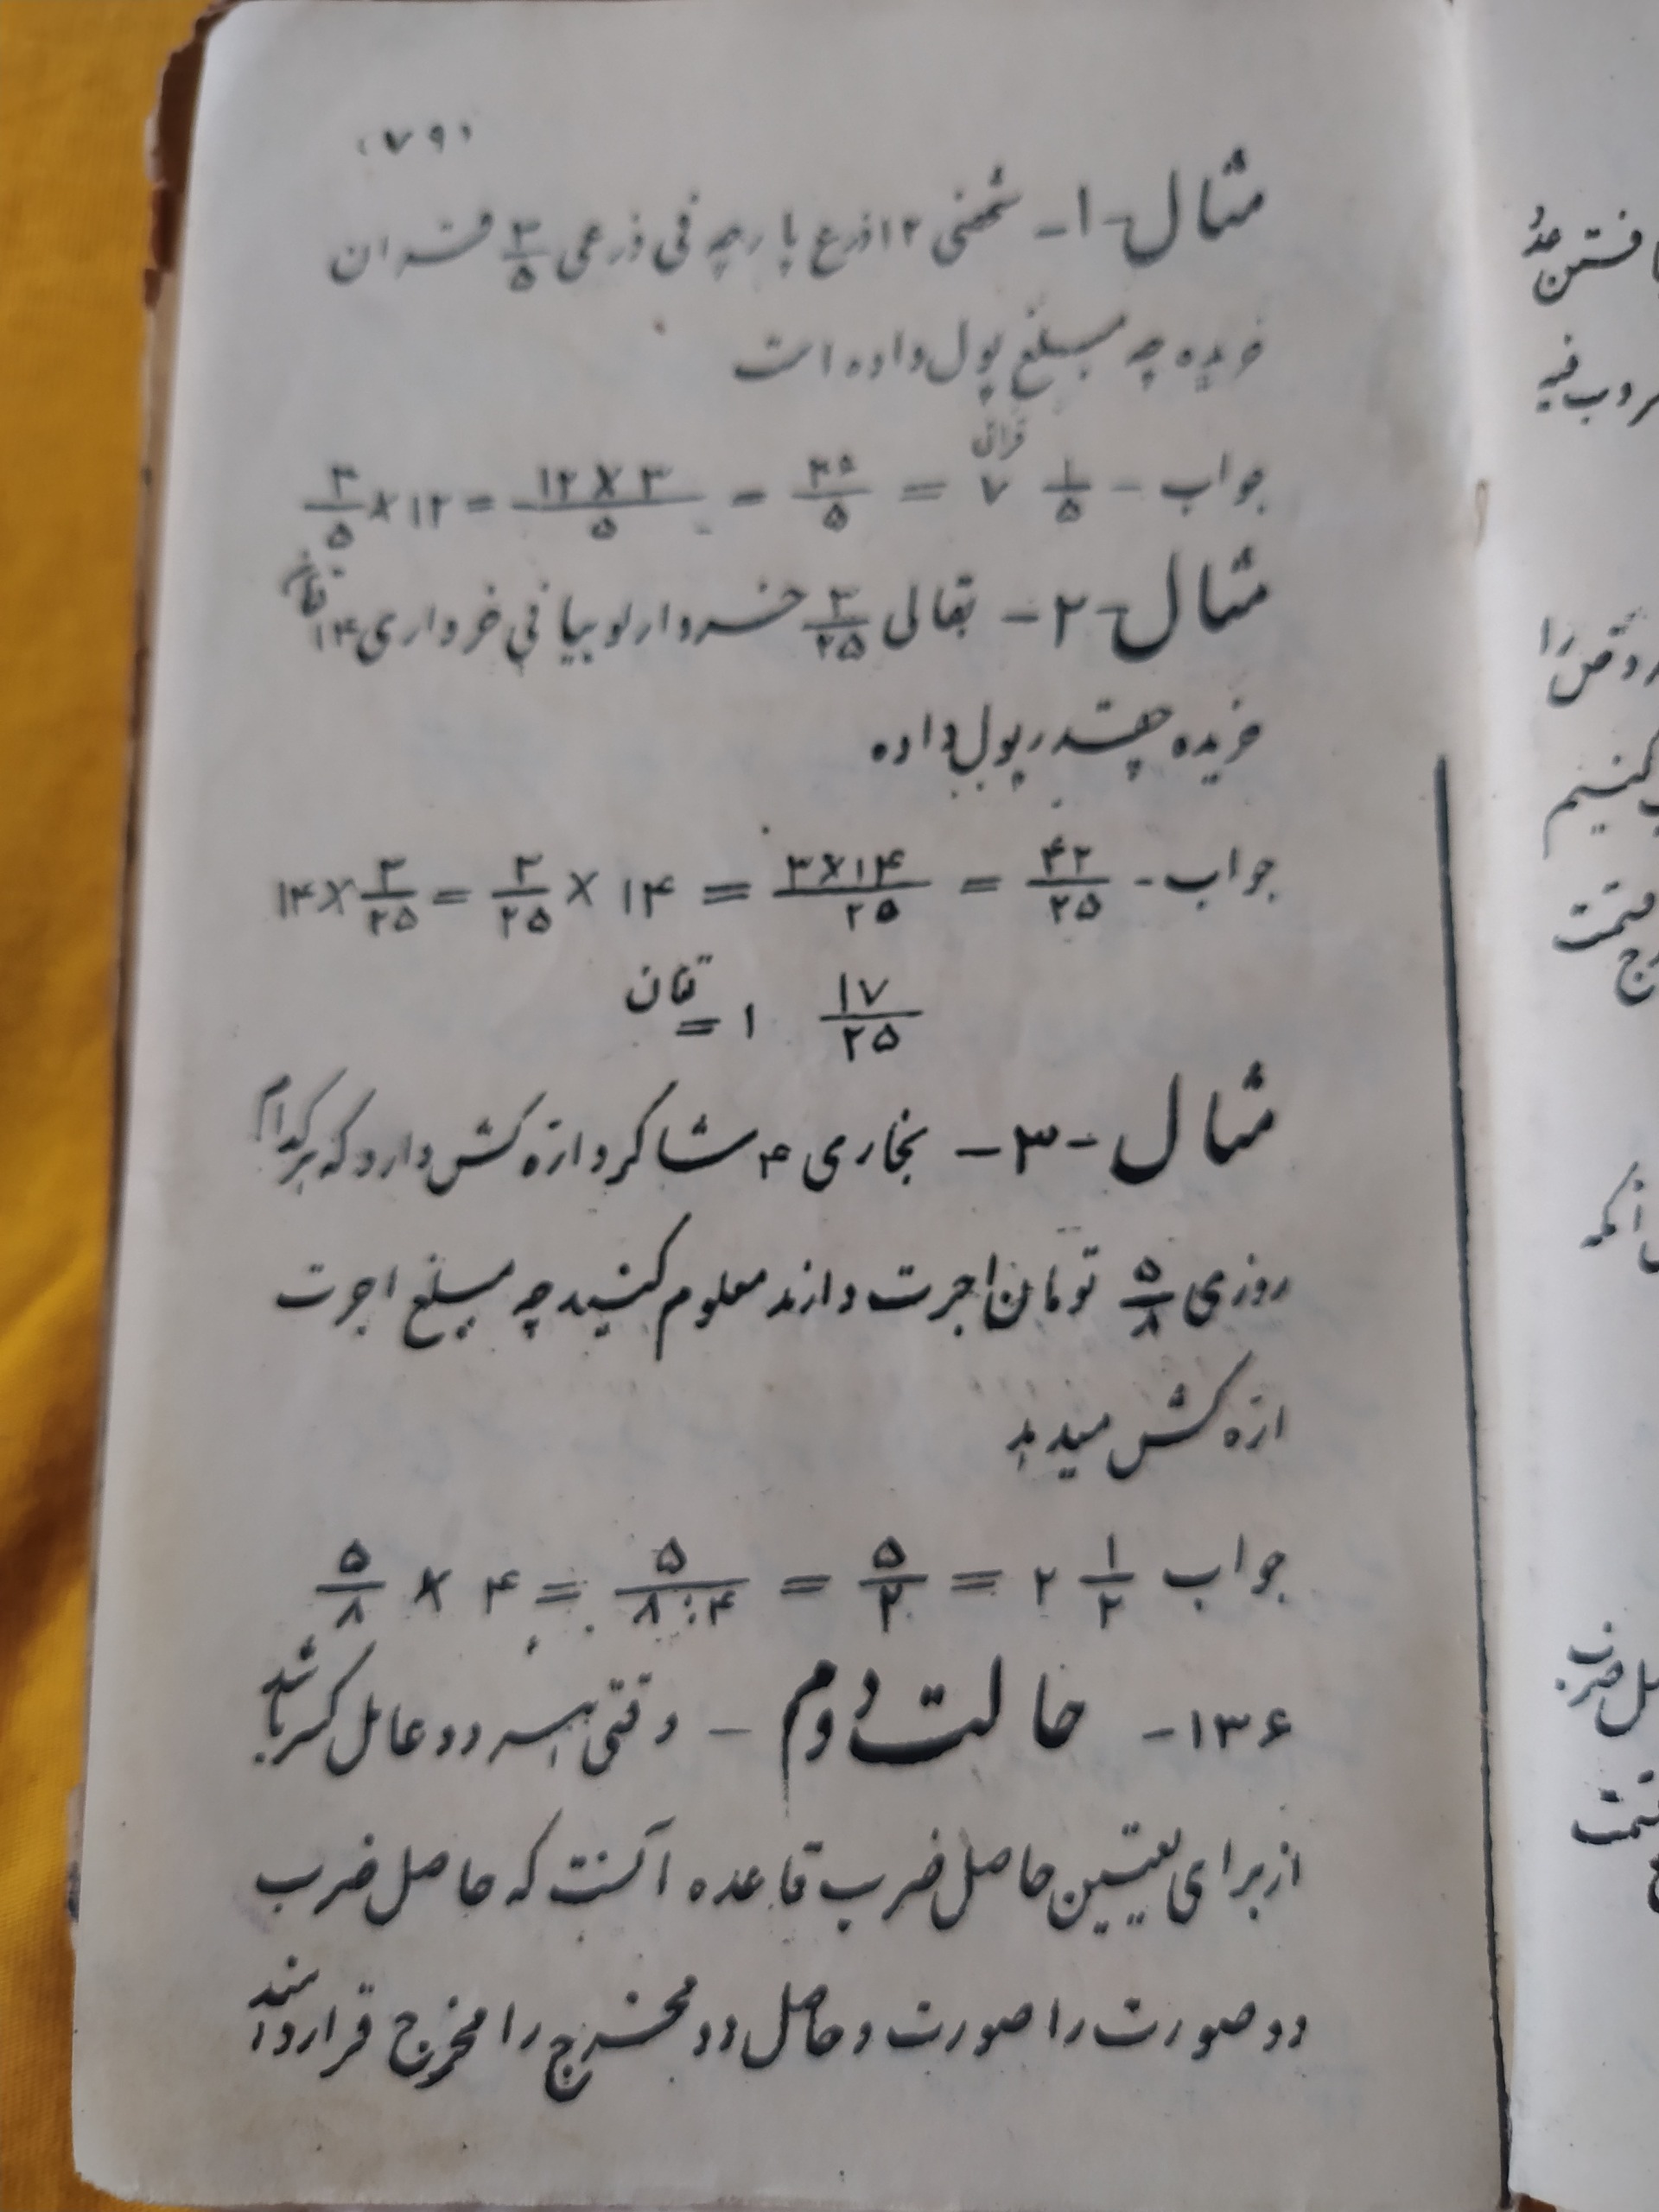 (۷۹)
مثال ۱- شخصی ۱۲ ذرع پارچه فی ذرعی ۳/۵ قران
خریده چه مبلغ پول داده است
جواب - ۳/۵ × ۱۲ = ۱۲×۳/۵ = ۳۶/۵ = ۷ ۱/۵ قران
مثال ۲- بقالی ۳/۲۵ خروار لوبیا فی خرواری ۱۴ تومان
خریده چقدر پول داده
جواب - ۱۴×۳/۲۵ = ۳/۲۵ × ۱۴ = ۳×۱۴/۲۵ = ۴۲/۲۵
= ۱ ۱۷/۲۵ تومان
مثال ۳- نجاری ۴ شاگرد اره کش دارد که هر کدام
روزی ۵/۸ تومان اجرت دارند معلوم کنید چه مبلغ اجرت
اره کش میدهد
جواب ۵/۸ × ۴ = ۵/۸:۴ = ۵/۲ = ۲ ۱/۲
۱۳۶- حالت دوم - وقتی هر دو عامل کسر باشد
از برای تعیین حاصل ضرب قاعده آنست که حاصل ضرب
دو صورت را صورت و حاصل دو مخرج را مخرج قرار دهند